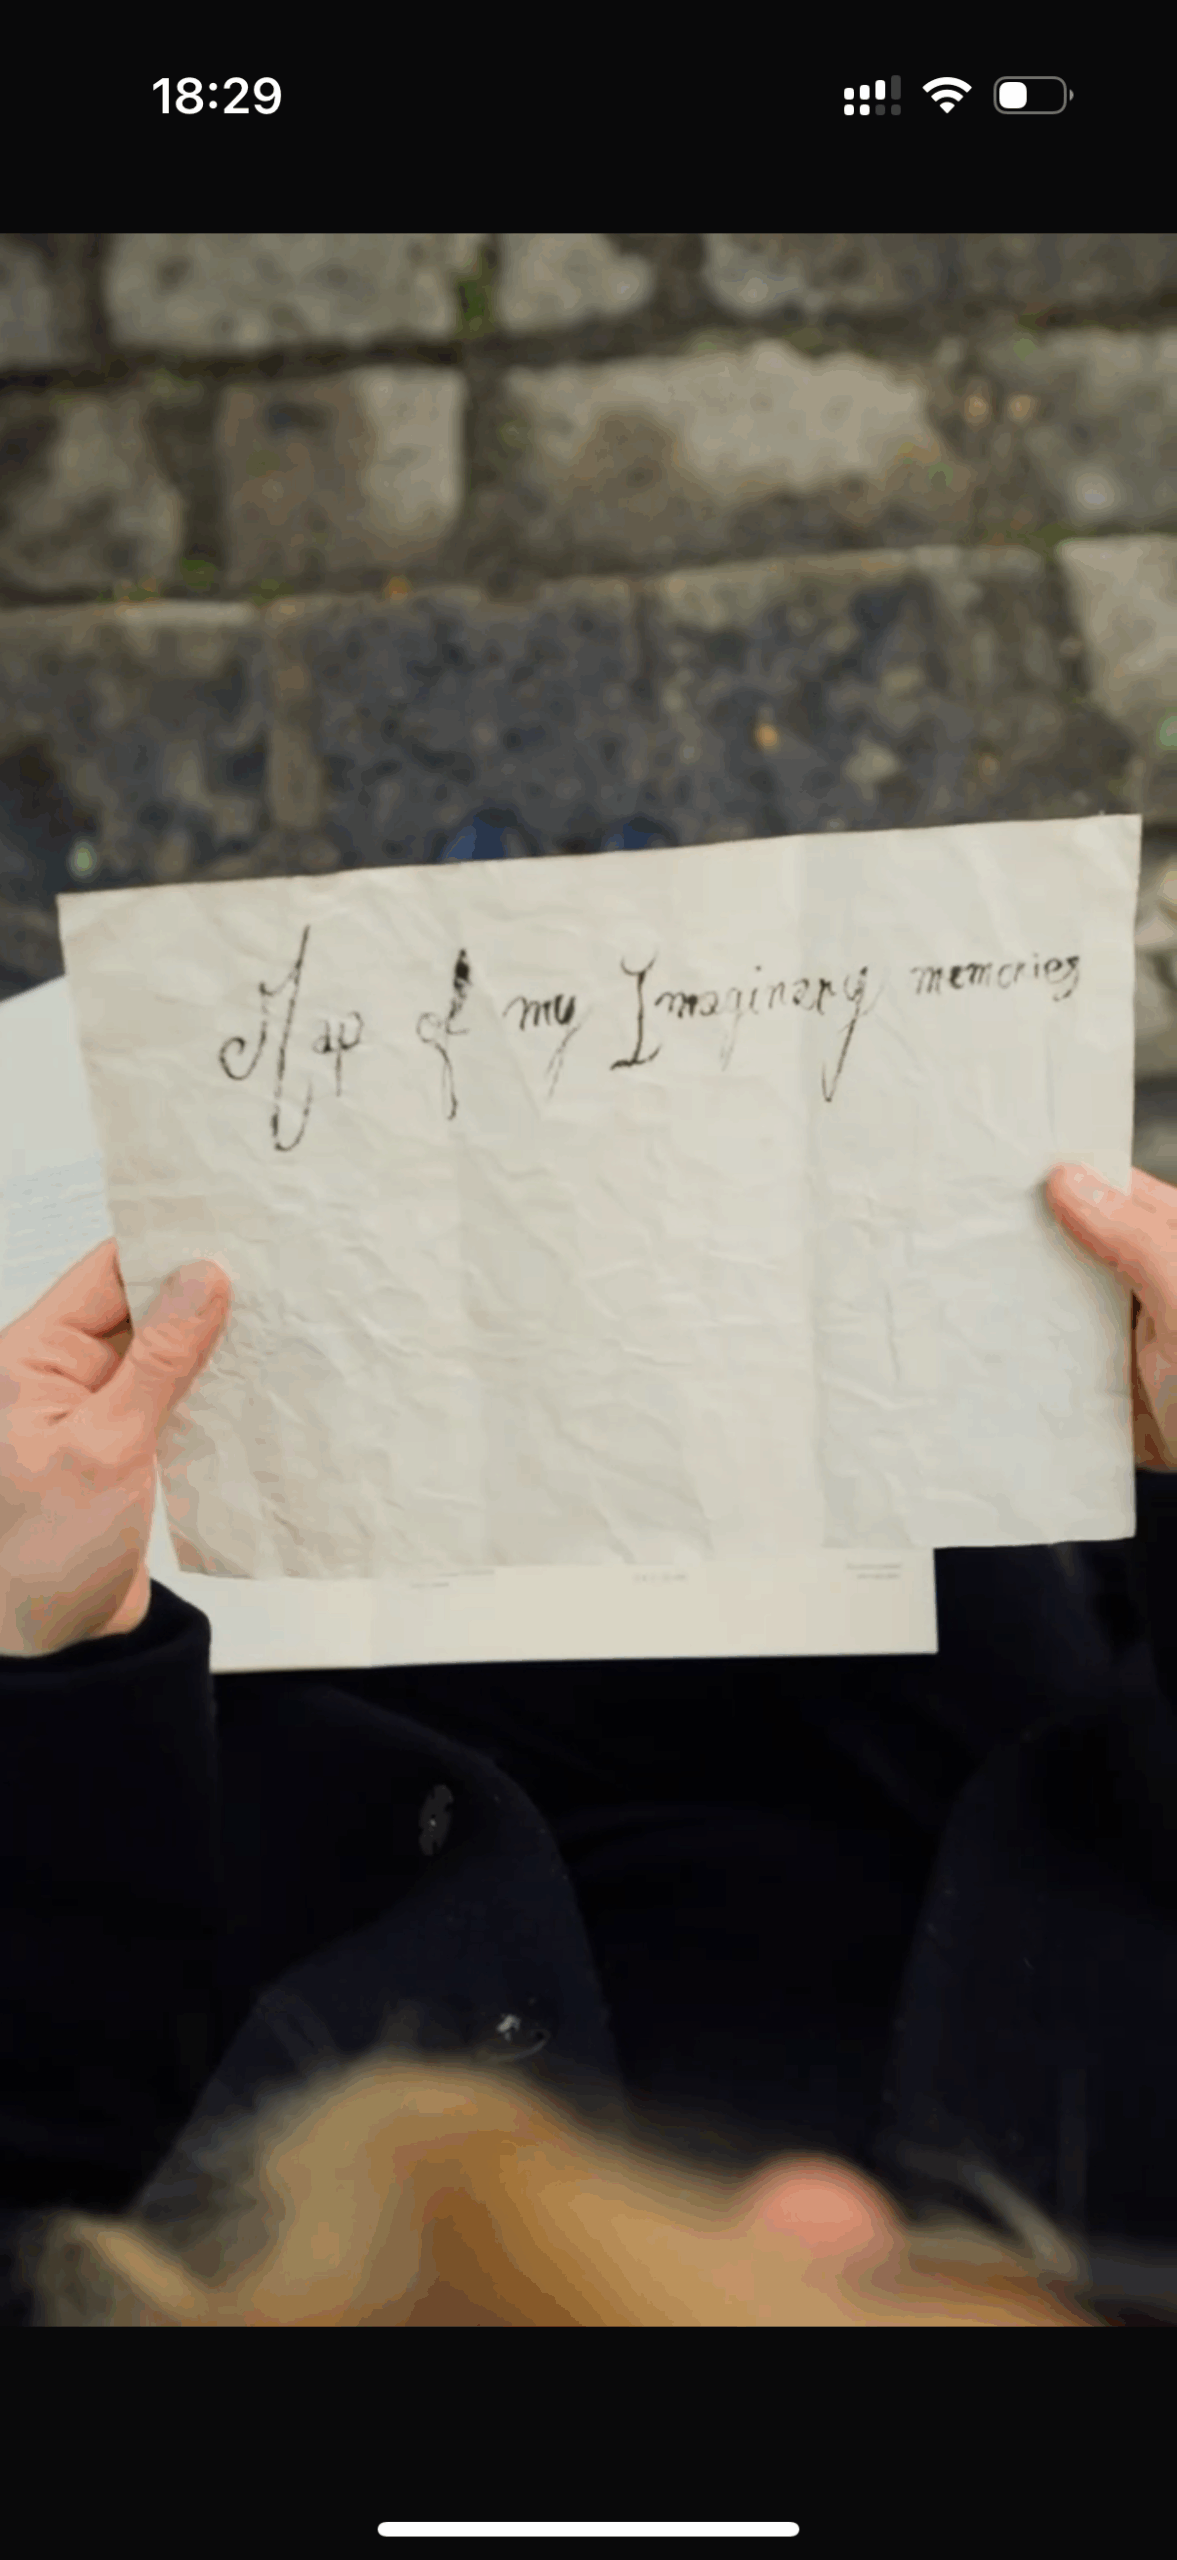 18:29
Map of my Imaginery memories